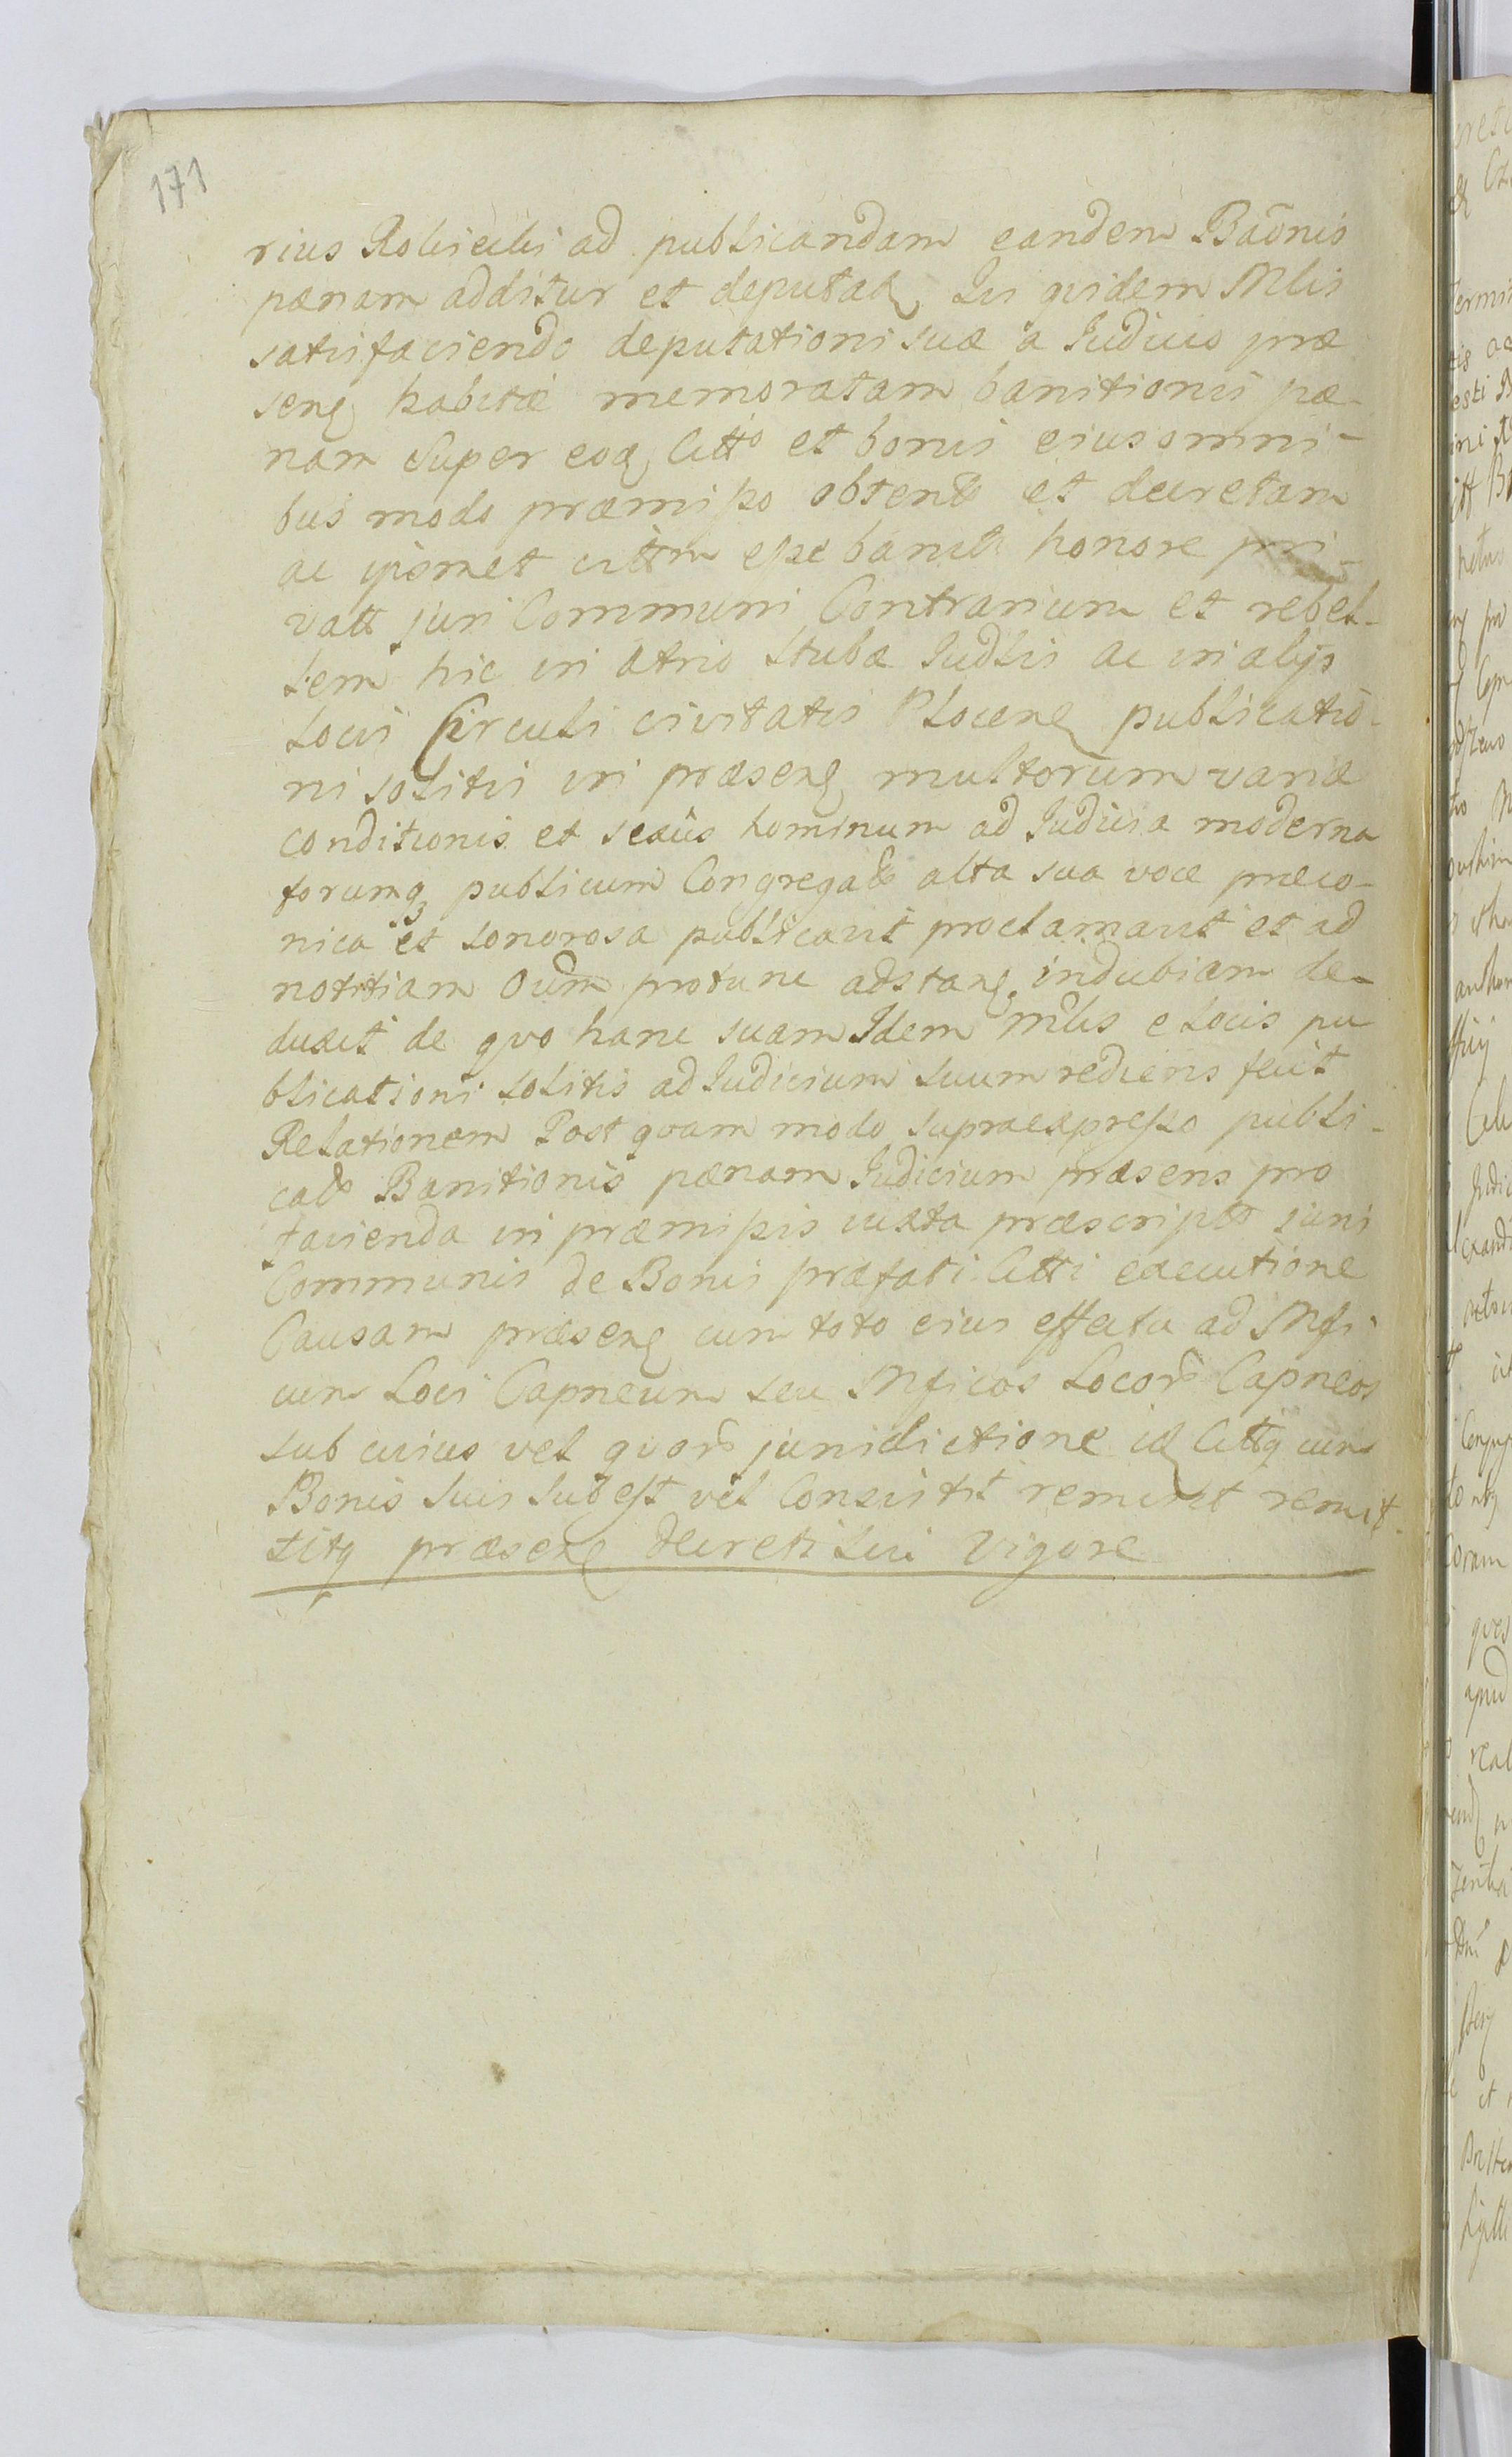 171
rius Robicibi ad publicandam eandem Baõnis
pænam additur et deputatꝫ Qui qvidem Mlis
satisfaciendo deputationi suæ a Iudicio præ
senꝫ habitæ memoratam banitionis pæ-
nam super eoꝫ Citto et bonis eius omni-
bus modo præmisso obtentꝫ et decretam
ac ipsmet cittm esse banitꝫ honore pri-
vatt juri Communi Contrarium et rebel-
lem hic in Atrio Stubæ Iudlis ac in alijs
Locis Circuli civitatis Plocenꝫ publicatio-
ni solitis in præsenꝫ multorum variæ
conditionis et sexûs hominum ad Iudicia moderna
forumqꝫ publicum Congregatꝫ alta sua voce præco-
nica et sonorosa publicavit proclamavit et ad
notitiam Oum̃ protunc adstanꝫ indubiam de-
duxit de qvo hanc suam Idem Mlis e locis pu
blicationi solitis ad Iudicium suum rediens fecit
Relationem Post qvam modo supraexpresso publi-
catꝫ Banitionis pænam Iudicium præsens pro
facienda in præmissis iuxta præscriptꝫ iuris
Communis de Bonis præfati Citti executione
Causam præsenꝫ cum toto eius effectu ad Mfi-
cum Loci Capneum seu Mficos Locorꝫ Capneos
sub cuius vel qvorꝫ jurisdictione idꝫ Cittꝫ cum
Bonis suis subest vel Consistit remisit remit-
titꝫ præsenꝫ decreti sui vigore